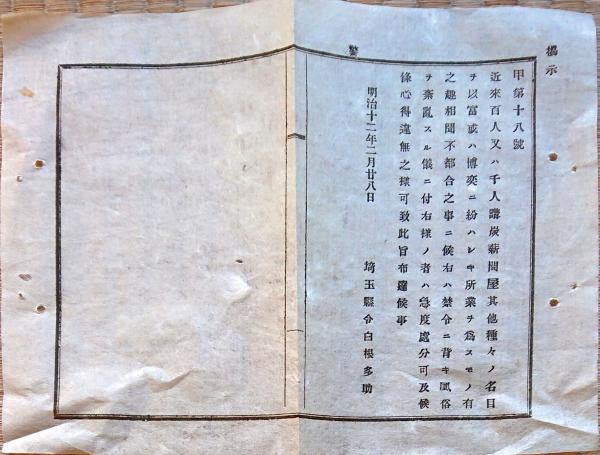 揭示
警
甲第十八號
近來百人又ハ千人講炭薪問屋其他種々ノ名目
ヲ以富或ハ博奕ニ紛ハシキ所業ヲ爲スモノ有
之趣相聞不都合之事ニ候右ハ禁令ニ背キ風俗
ヲ紊亂スル儀ニ付右樣ノ者ハ急度處分可及候
條心得違無之樣可致此旨布達候事
明治十二年二月廿八日
埼玉縣令白根多助